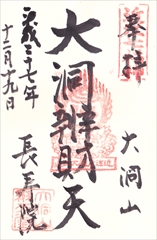 奉拝
大洞山
大洞辨財天
長寿院
平成二十七年
十二月十九日